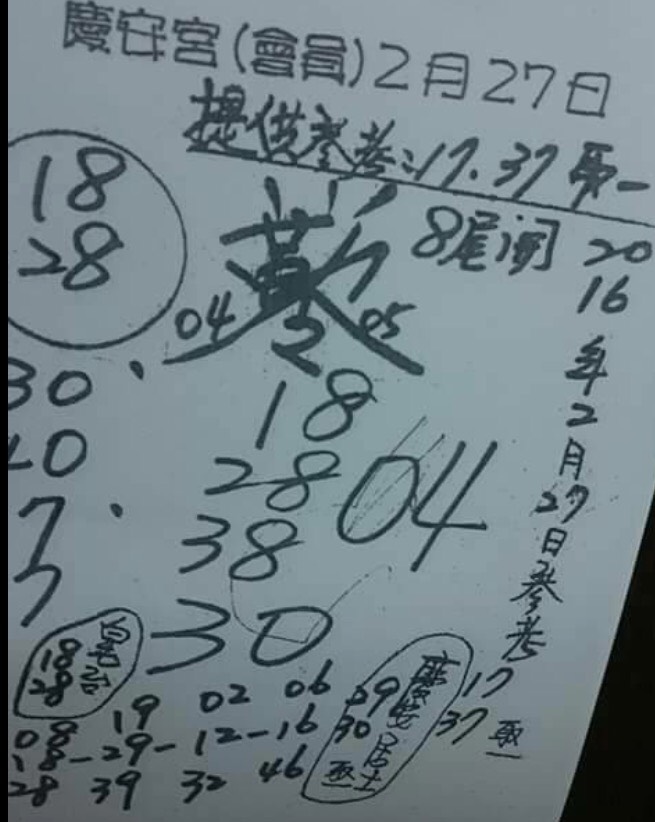 慶安宮(會員)2月27日
提供參考:17.37取一
18
28
8尾開
2016年2月27日參考
04
05
2
30
40
7
7
18
28
38
30
04
18
28
19 02 06
08
18-29-12-16
28 39 32 46
39
30
慶安居士
取
17
37取